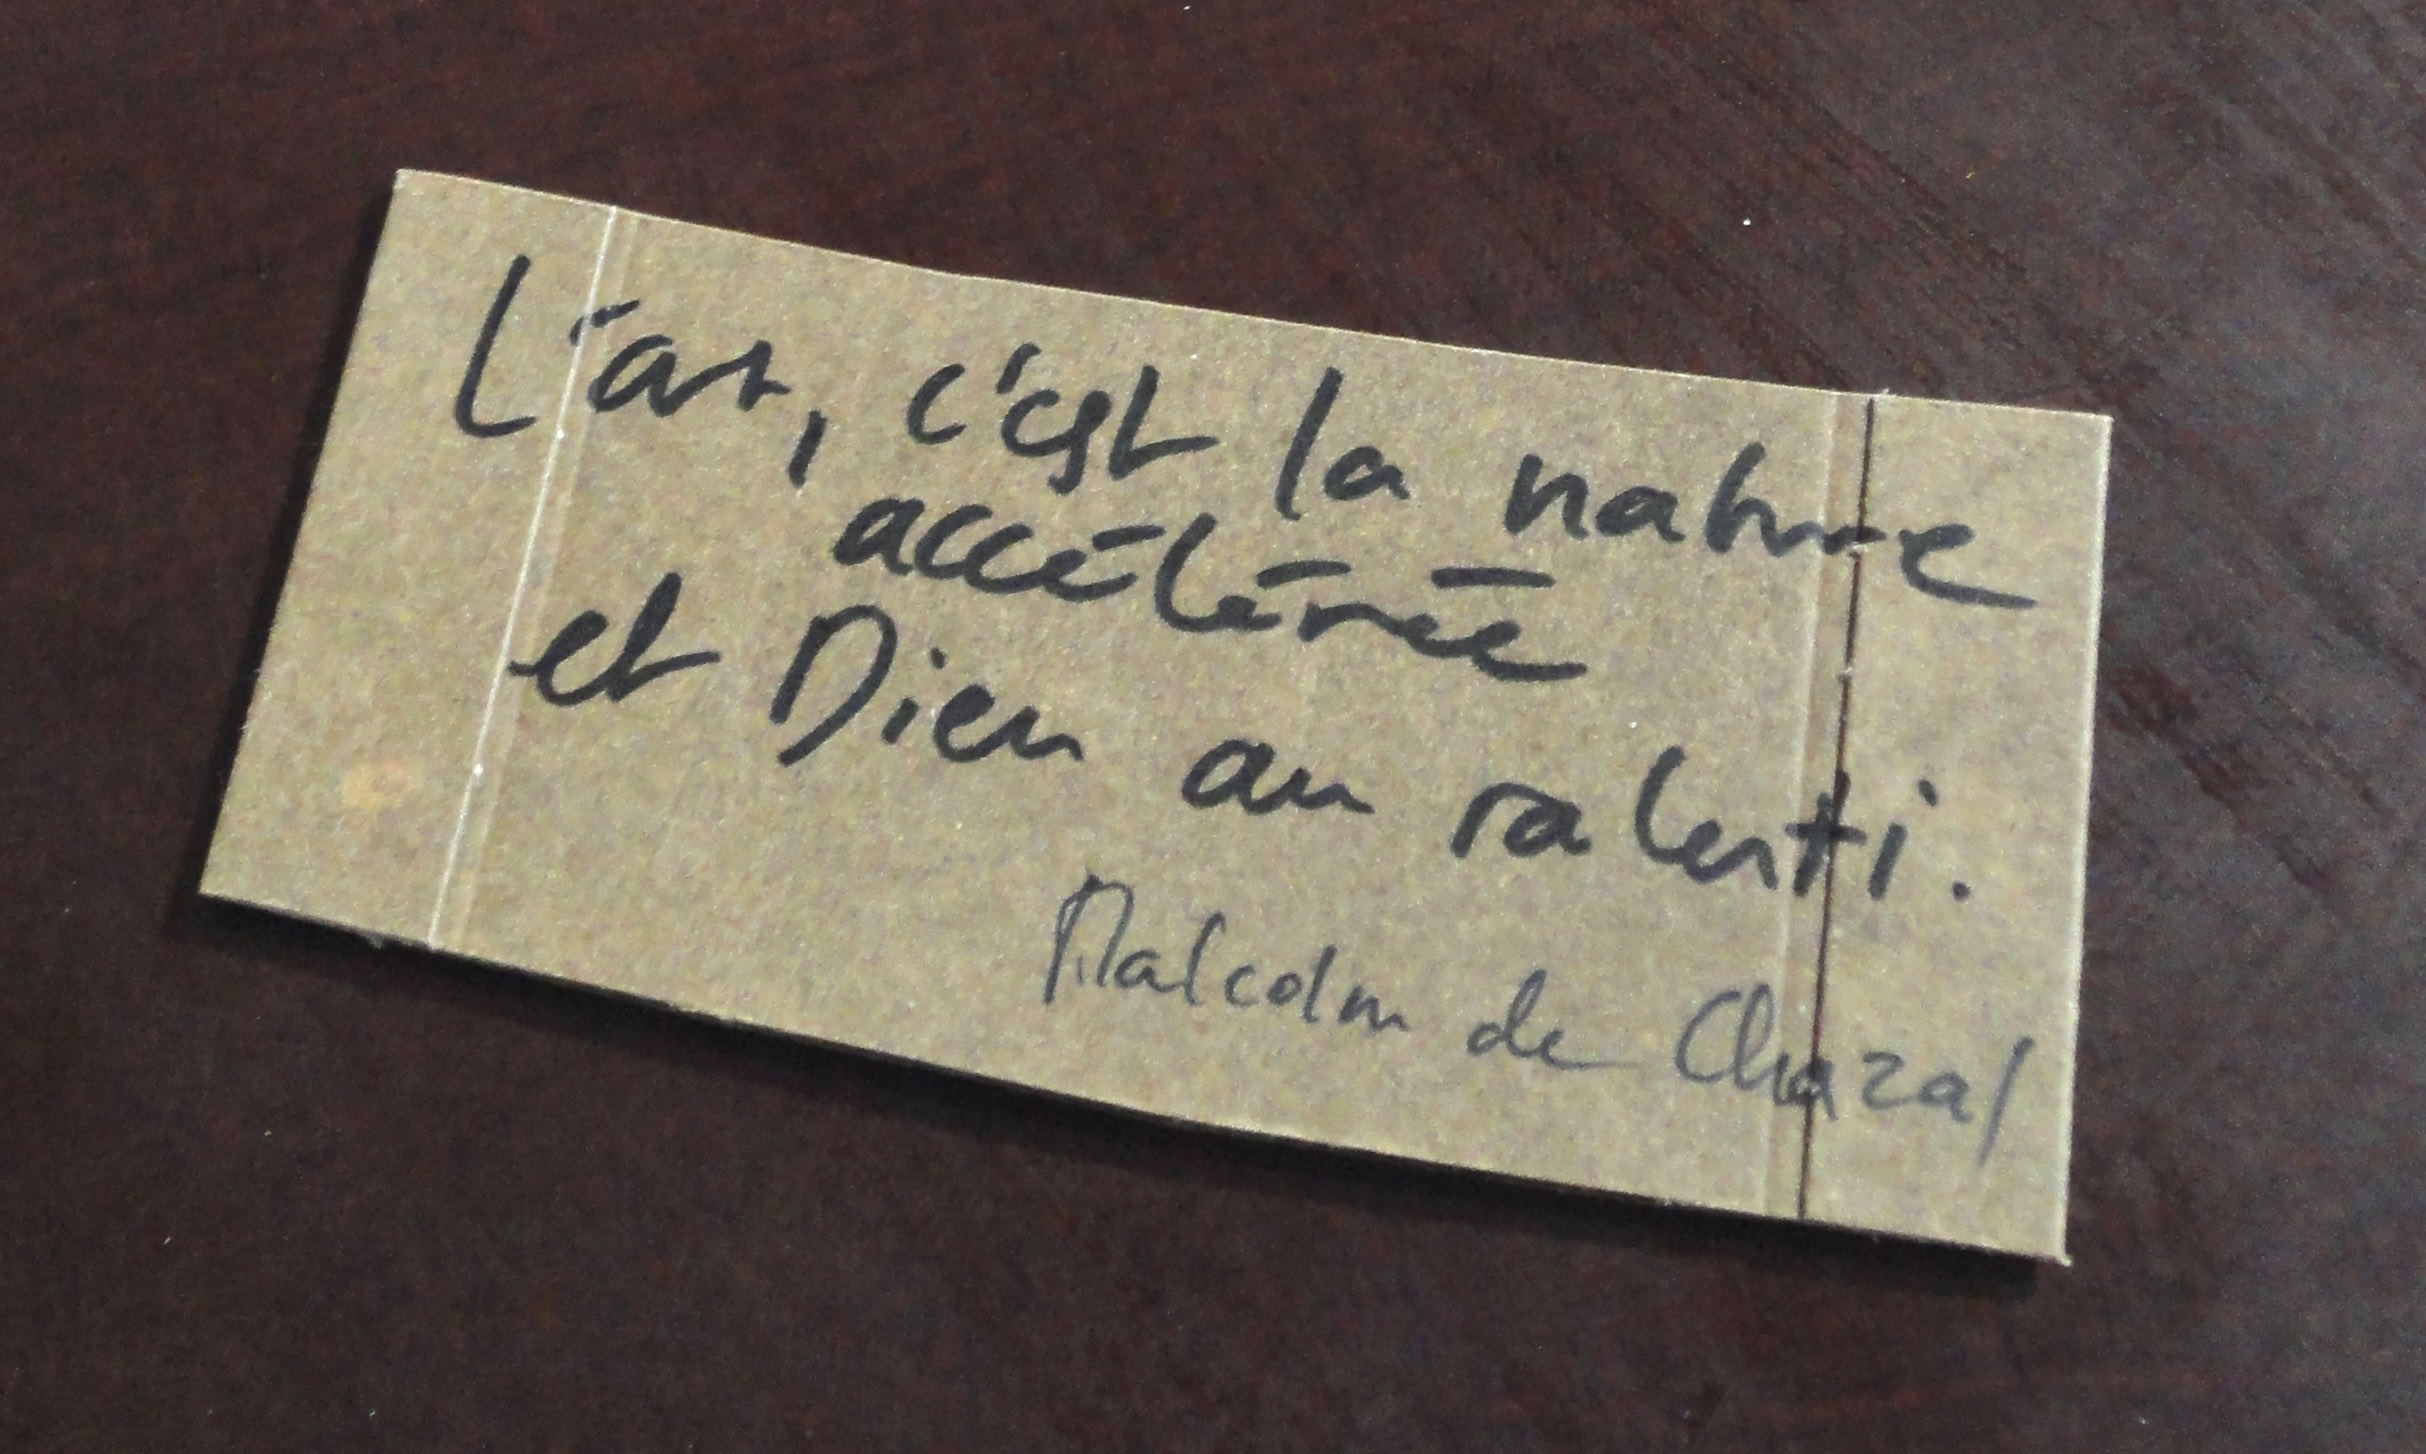 L'art, c'est la nature
accélérée
et Dieu au ralenti.
Malcolm de Chazal